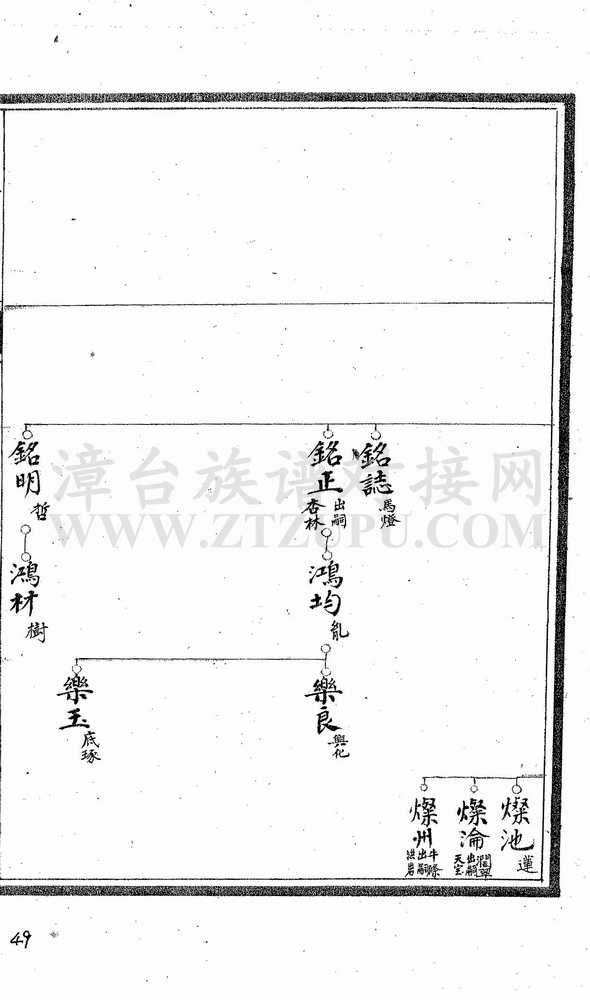 銘誌
馬燈
銘正
出嗣
杏林
銘明
哲
鴻均
亂
鴻材
樹
樂良
興化
樂玉
底琢
燦池
蓮
燦淪
出嗣
天宝
燦州
牛條
出嗣
洪岩
漳台族谱对接网
WWW.ZTZUPU.COM
49